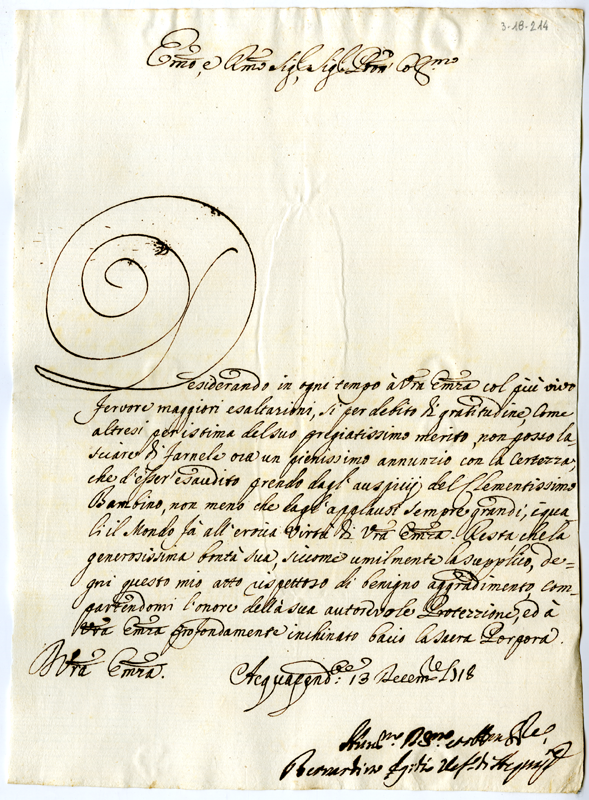 3-18-214
Emo, e Rmo Sigr, Sigr Pron Colmo
Desiderando in ogni tempo à Vra Emza col più vivo
fervore maggiori esaltazioni, sì per debito di gratitudine, Come
altresì per istima del suo pregiatissimo merito, non posso la
sciare di farnele ora un pienissimo annunzio con la Certezza,
che d'esser'esaudito prendo dagl'auspicij del Clementissimo
Bambino, non meno che dagl'applausi sempre grandi, i qua
li il Mondo fà all'eroica Virtù di Vra Emza. Resta che la
generosissima bontà sua, siccome umilmente la supplico, de=
gni questo mio atto rispettoso di benigno aggradimento, com=
partendomi l'onore della sua autorevole Protezzione, ed à
Vra Emza profondamente inchinato bacio la Sacra Porpora.
Vra Emza. Acquapende 13 Decemre 1718
Bernardino